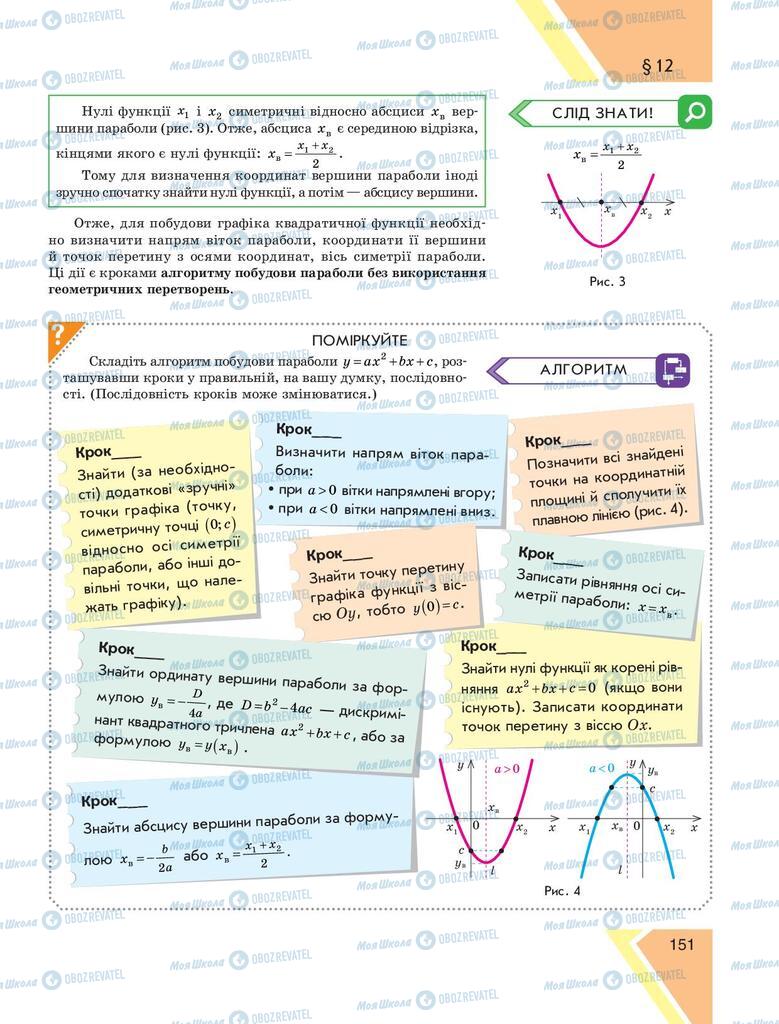 § 12
Нулі функції x₁ і x₂ симетричні відносно абсциси xв вер-
шини параболи (рис. 3). Отже, абсциса xв є серединою відрізка,
кінцями якого є нулі функції: xв = (x₁ + x₂)/2 .
Тому для визначення координат вершини параболи іноді
зручно спочатку знайти нулі функції, а потім — абсцису вершини.
СЛІД ЗНАТИ!
xв = (x₁ + x₂)/2
x₁ xв x₂ x
Рис. 3
Отже, для побудови графіка квадратичної функції необхід-
но визначити напрям віток параболи, координати її вершини
й точок перетину з осями координат, вісь симетрії параболи.
Ці дії є кроками алгоритму побудови параболи без використання
геометричних перетворень.
?
ПОМІРКУЙТЕ
Складіть алгоритм побудови параболи y = ax² + bx + c, роз-
ташувавши кроки у правильній, на вашу думку, послідовно-
сті. (Послідовність кроків може змінюватися.)
АЛГОРИТМ
Крок____
Знайти (за необхідно-
сті) додаткові «зручні»
точки графіка (точку,
симетричну точці (0; c)
відносно осі симетрії
параболи, або інші до-
вільні точки, що нале-
жать графіку).
Крок____
Визначити напрям віток пара-
боли:
• при a > 0 вітки напрямлені вгору;
• при a < 0 вітки напрямлені вниз.
Крок____
Позначити всі знайдені
точки на координатній
площині й сполучити їх
плавною лінією (рис. 4).
Крок____
Знайти точку перетину
графіка функції з віс-
сю Oy, тобто y(0) = c.
Крок____
Записати рівняння осі си-
метрії параболи: x = xв.
Крок____
Знайти ординату вершини параболи за фор-
мулою yв = −D/4a, де D = b² − 4ac — дискримі-
нант квадратного тричлена ax² + bx + c, або за
формулою yв = y(xв) .
Крок____
Знайти нулі функції як корені рів-
няння ax² + bx + c = 0 (якщо вони
існують). Записати координати
точок перетину з віссю Ox.
Крок____
Знайти абсцису вершини параболи за форму-
лою xв = −b/2a або xв = (x₁ + x₂)/2 .
y a > 0
xв
x₁ 0 x₂ x
c
yв l
a < 0 y yв
c
x₁ xв 0 x₂ x
l
Рис. 4
151
Моя Школа OBOZREVATEL